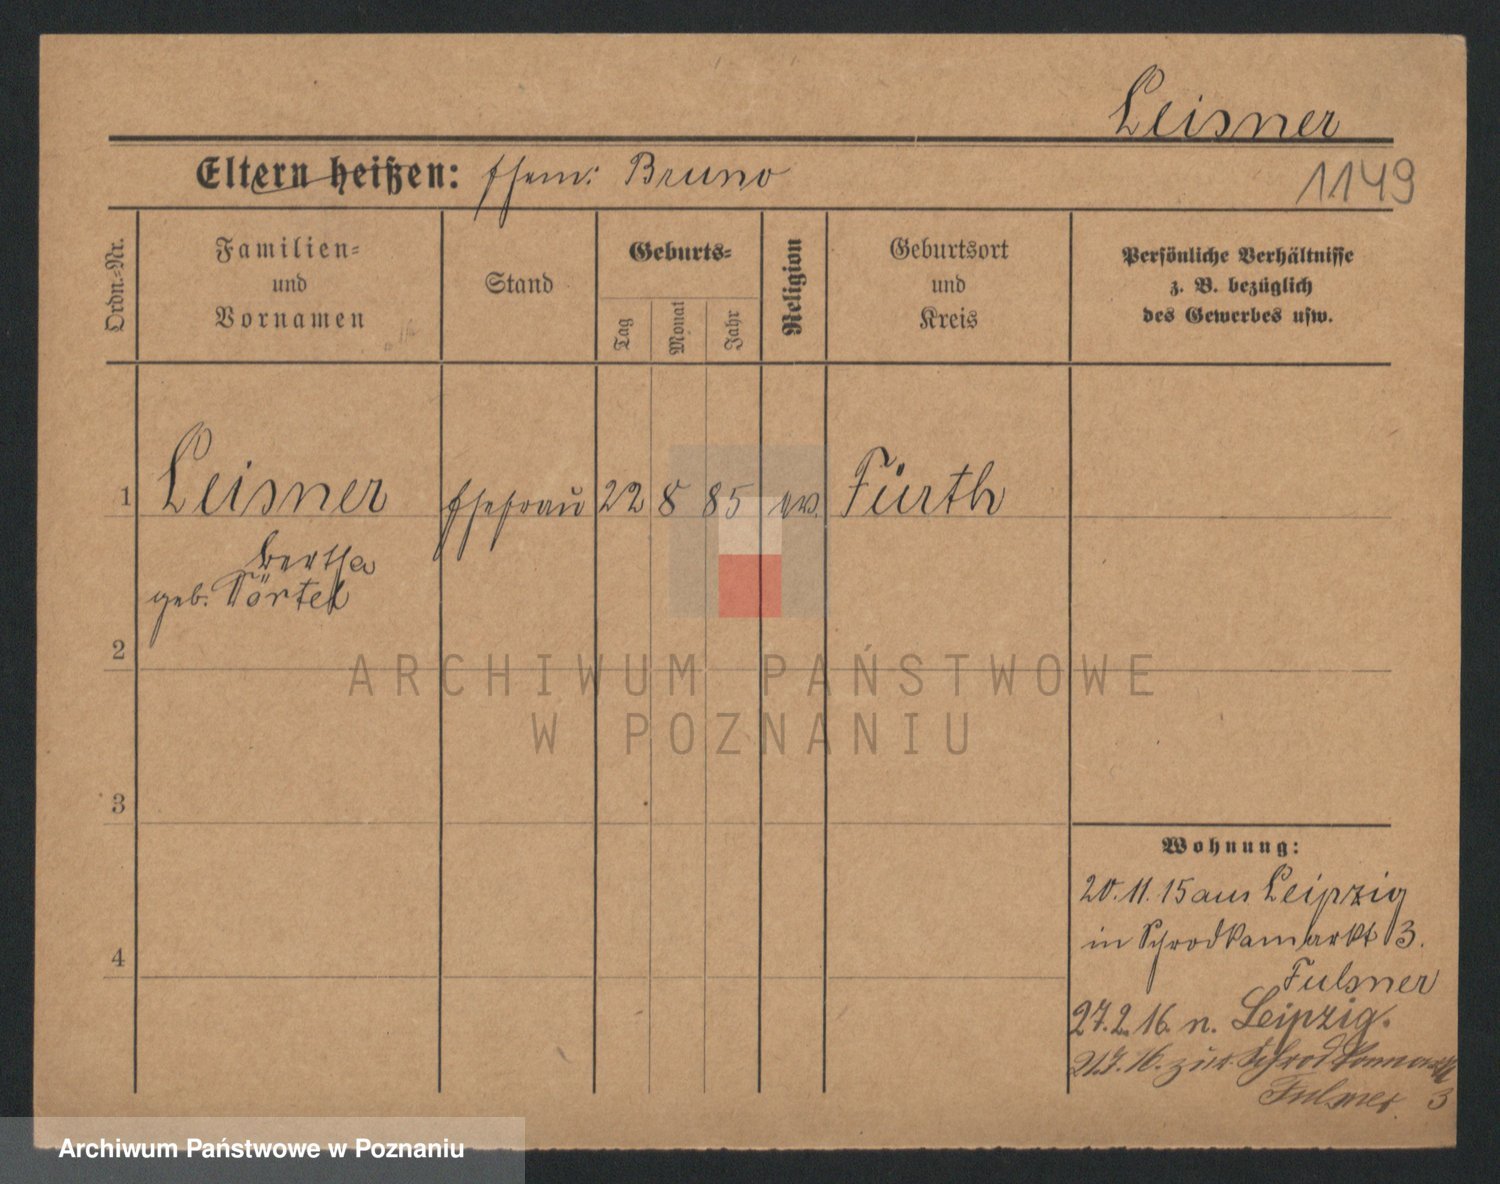 Leisner
1149
Eltern heißen: Ehem: Bruno
Ordn.-Nr.
Familien-
und
Vornamen
Stand
Geburts-
Tag
Monat
Jahr
Religion
Geburtsort
und
Kreis
Persönliche Verhältnisse
z. B. bezüglich
des Gewerbes usw.
1 Leisner Ehefrau 22 8 85 ev. Fürth
Bertha
geb. Törtel
2
3
4
Wohnung:
20.11.15 aus Leipzig
in Schrodkamarkt 3.
Fulsner
27.2.16. n. Leipzig.
zur. Schrodkamarkt
Fulsner 3
ARCHIWUM PAŃSTWOWE
W POZNANIU
Archiwum Państwowe w Poznaniu